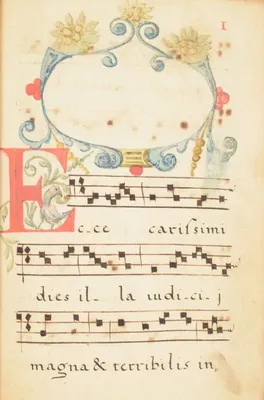 1
Ec-ce carissimi
dies il- la iudi-ci-j
magna & terribilis in